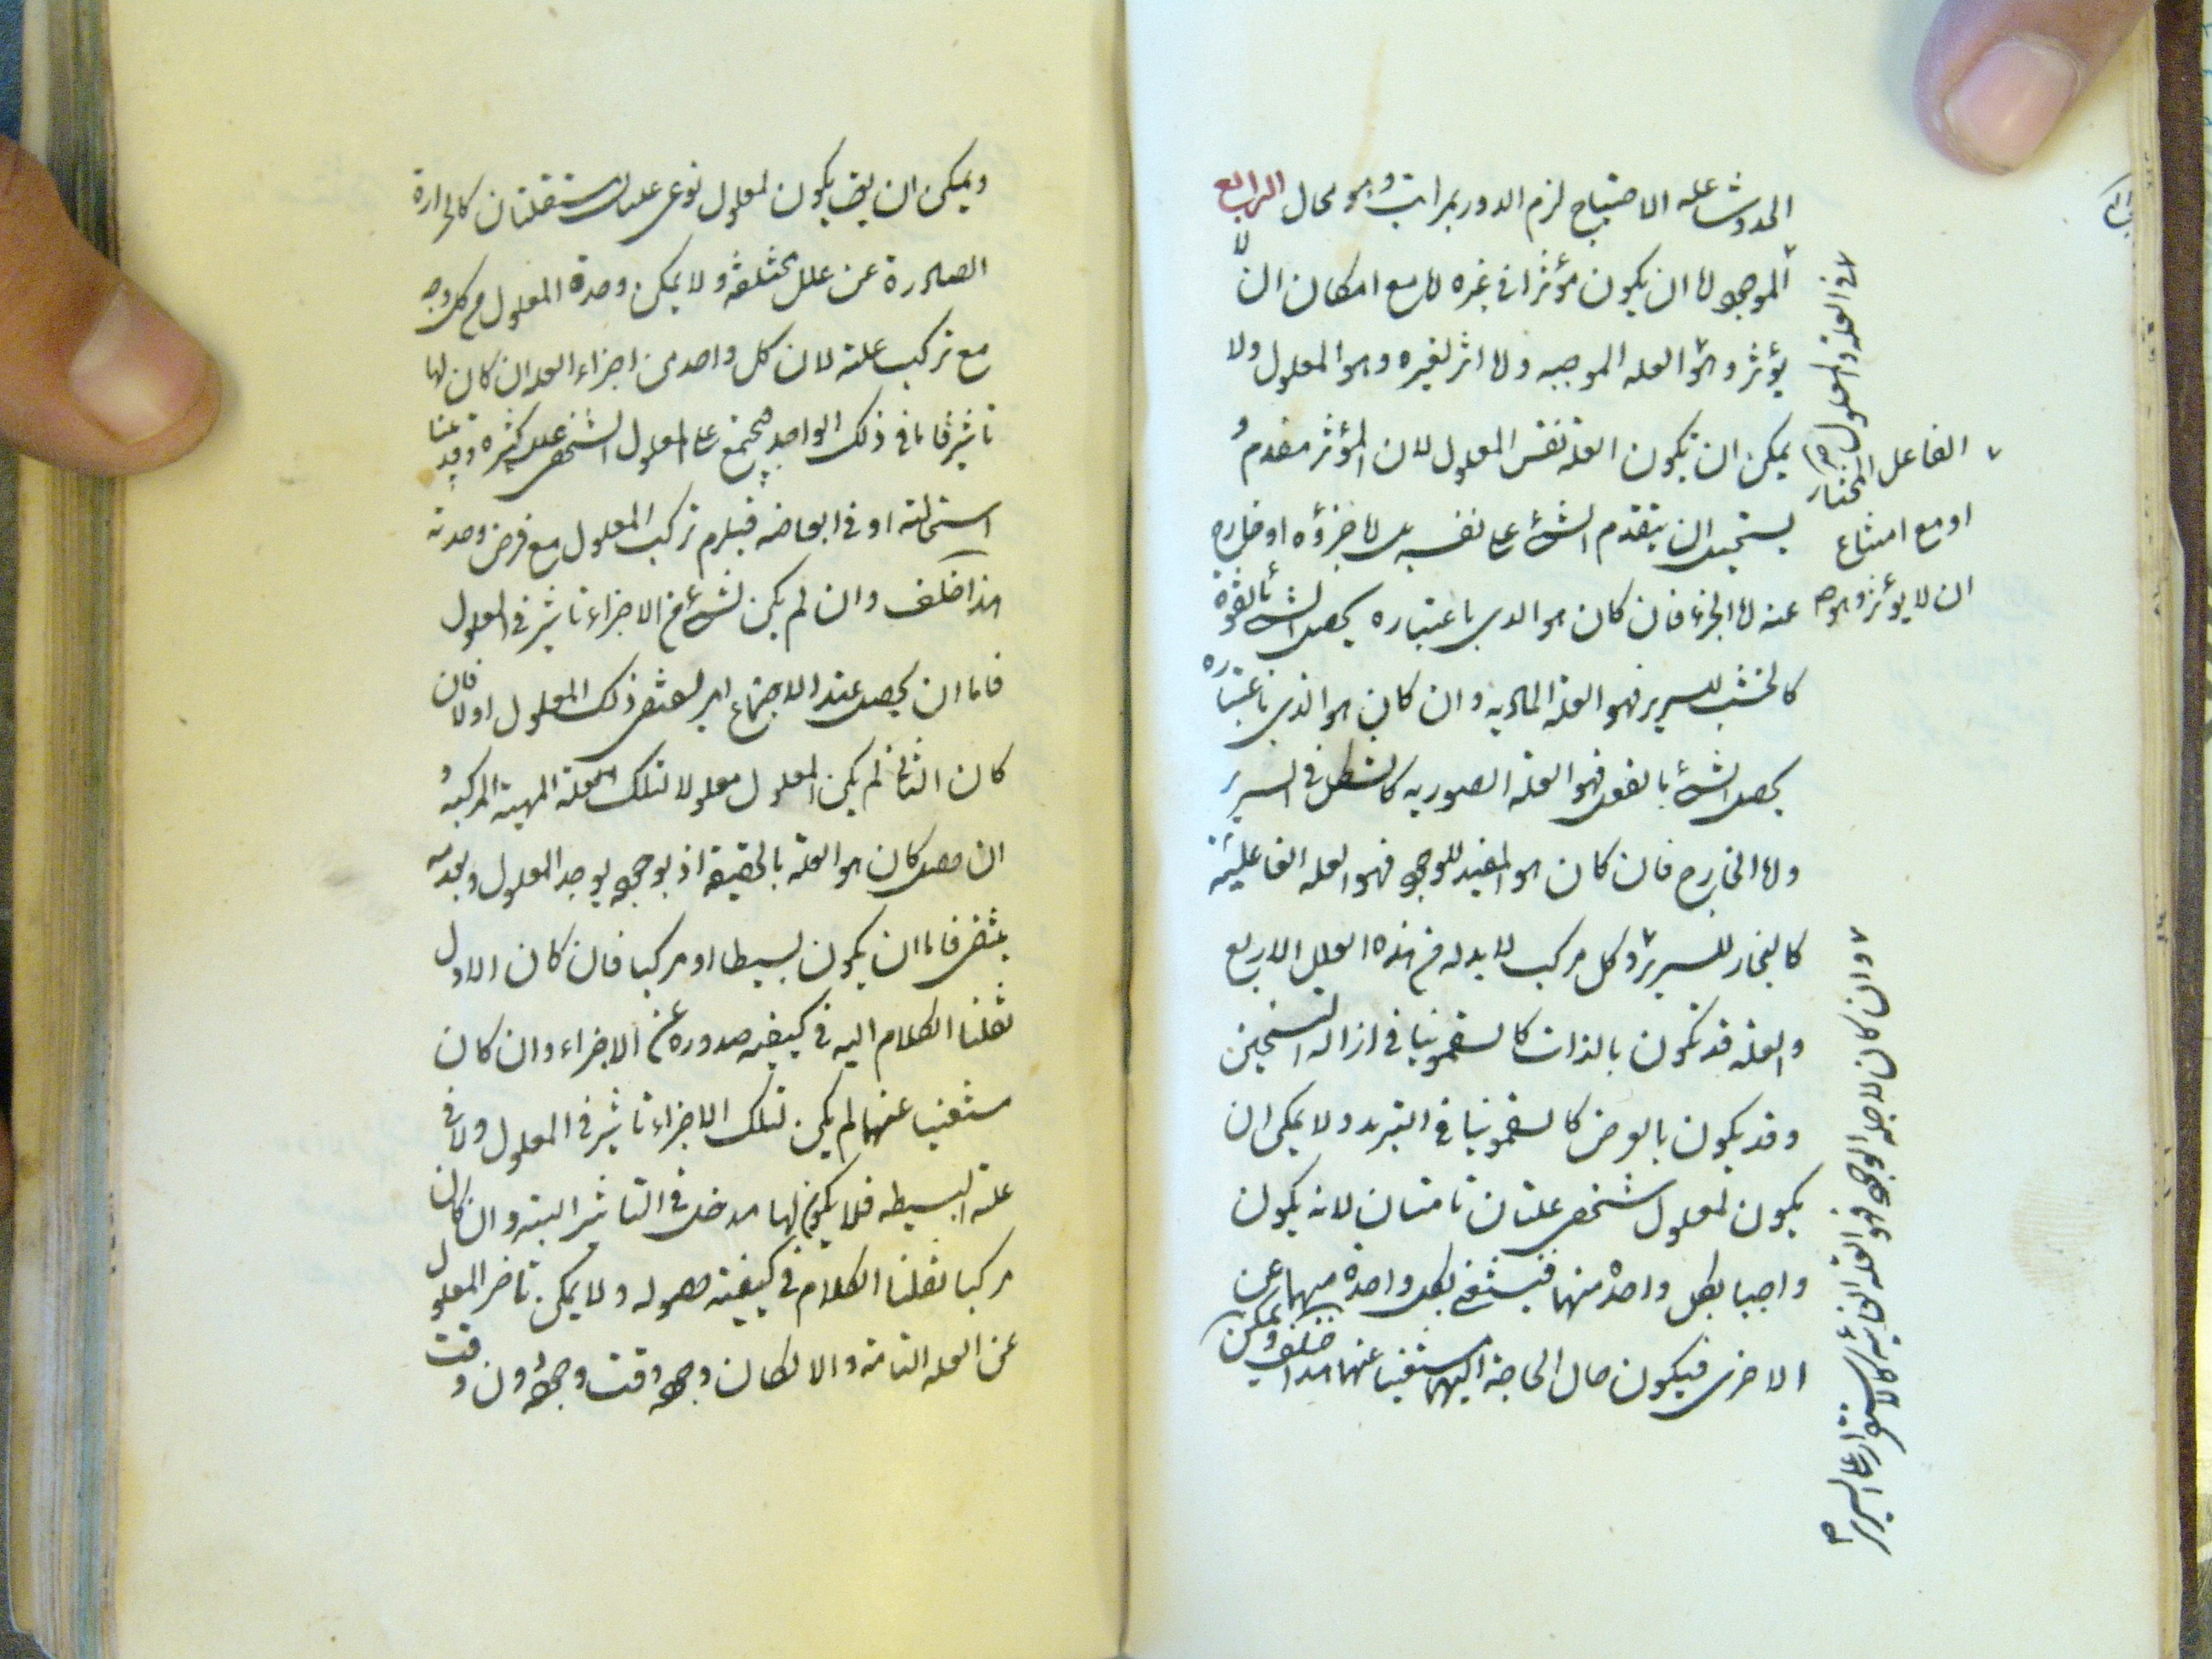 الحدوث علة الاحتياج لزم الدور بمراتب وهو محال الرابع
الموجود اما ان يكون مؤثرا في غيره اما مع امكان ان لا
يؤثر وهو العله الموجبه واما اثر لغيره وهو المعلول ولا
يمكن ان تكون العلة نفس المعلول لان المؤثر مقدم و
يستحيل ان يتقدم الشئ على نفسه بل اما جزؤه او خارج
عنه اما الجزء فان كان هو الذي باعتباره يحصل الشئ بالقوة
كالخشب للسرير فهو العلة الماديه وان كان هو الذي باعتباره
يحصل الشئ بالفعل فهو العلة الصوريه كالشكل في السرير
واما الخارج فان كان هو المفيد للوجود فهو العله الفاعلية
كالنجار للسرير وكل مركب لا بد له من هذه العلل الاربع
والعله قد تكون بالذات كالسقمونيا في ازالة التسخين
وقد يكون بالعرض كالسقمونيا في التبريد ولا يمكن ان
يكون لمعلول شخصي علتان تامتان لانه يكون
واجبا بكل واحدة منهما فيستغني بكل واحدة منهما عن
الاخرى فيكون حال الحاجة اليهما مستغنيا عنهما هذا خلف ويمكن
في العلة والمعلول
الفاعل المختار
او مع امتناع
ان لا يؤثر وهو
وان كان لاجله الوجود فهو العلة الغائية كالاستقرار على السرير
ويمكن ان يكون لمعلول نوعي علتان مستقلتان كالحرارة
الصادرة عن علل مختلفة ولا يمكن وحدة المعلول من كل وجه
مع تركيب علته لان كل واحد من اجزاء العله ان كان لها
تاثير فاما في ذلك الواحد فيجتمع على المعلول الشخصي علل كثيره وقد
استحالته او في ابعاضه فيلزم تركب المعلول مع فرض وحدته
هذا خلف وان لم يكن لشئ من الاجزاء تاثير في المعلول
فاما ان يحصل عند الاجتماع امر يقتضي ذلك المعلول اولا فان
كان الثاني لم يكن المعلول معلولا لتلك العلة المهية المركبة و
ان حصل كان هو العلة بالحقيقة اذ بوجوده يوجد المعلول وبعدمه
ينتفي فاما ان يكون بسيطا او مركبا فان كان الاول
نقلنا الكلام اليه في كيفيه صدوره عن الاجزاء وان كان
مستغنيا عنها لم يكن لتلك الاجزاء تاثير في المعلول ولا في
علته البسيطه فلا يكون لها مدخل في التاثير البته وان كان
مركبا نقلنا الكلام في كيفية حصوله ولا يمكن تاخر المعلول
عن العله التامة والا لكان وجوده وقت وجوده دون وقت